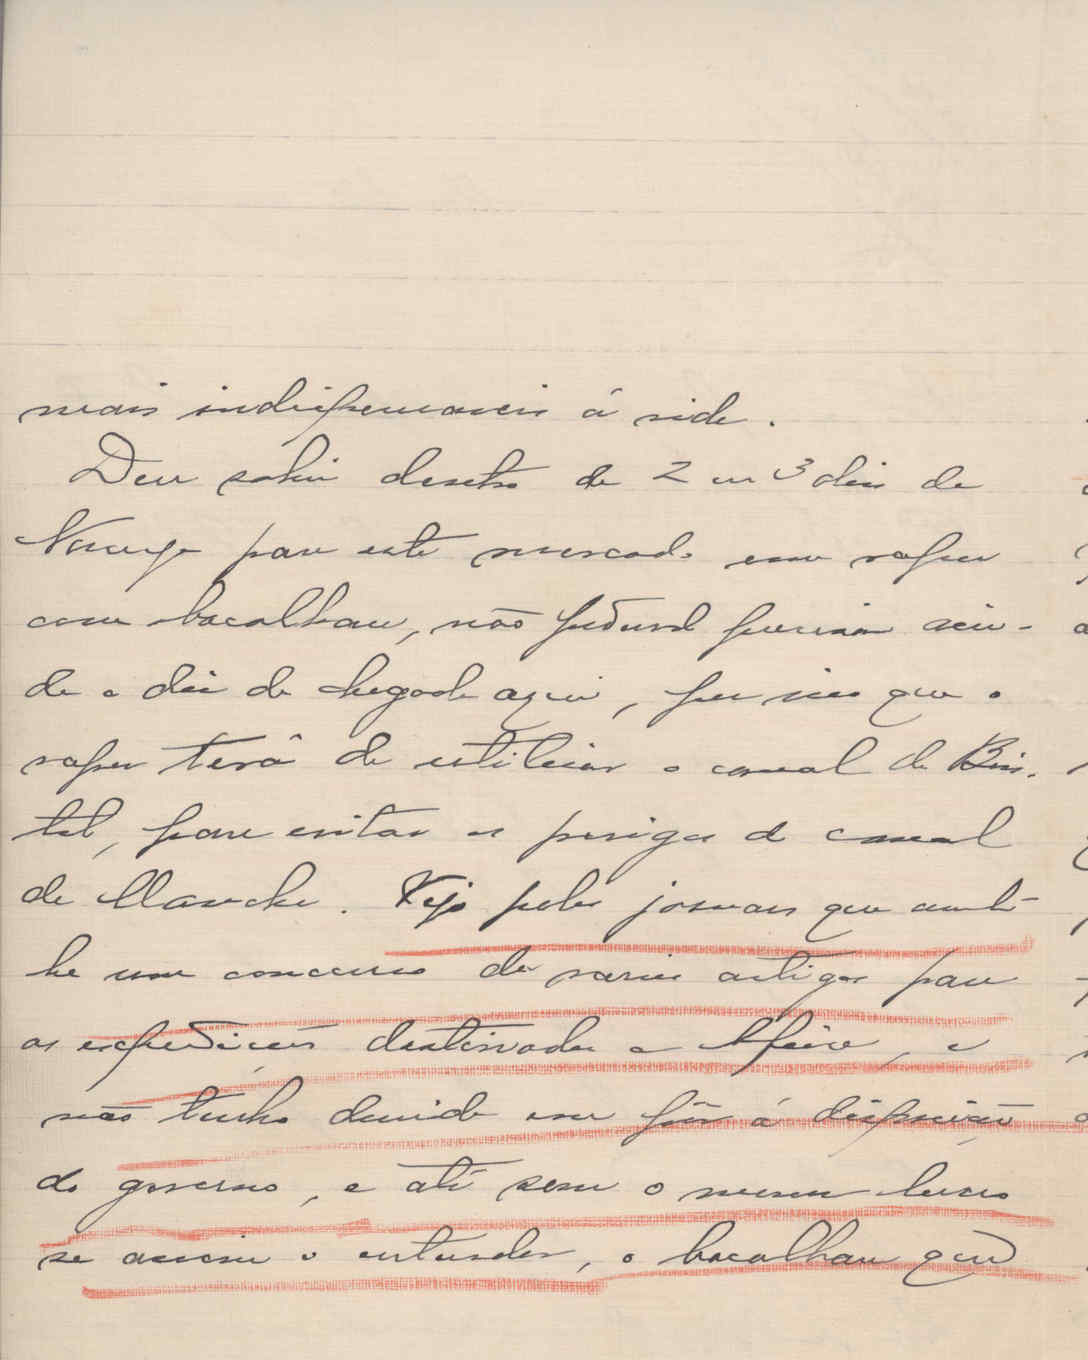 mais indispensaveis á vida.
Deve sahir dentro de 2 ou 3 dias da
Noruega para este mercado um vapor
com bacalhau, não podendo precisar ain-
da o dia da chegada aqui, por isso que o
vapor terá de utilisar o canal de Bris-
tol, para evitar os perigos do canal
da Mancha. Vejo pelos jornaes que
um concurso de varios artigos para
as expedições destinadas a Africa, e
não tenho duvida em pôr á disposição
do governo, e até sem o menor lucro
se assim o entender, o bacalhau que